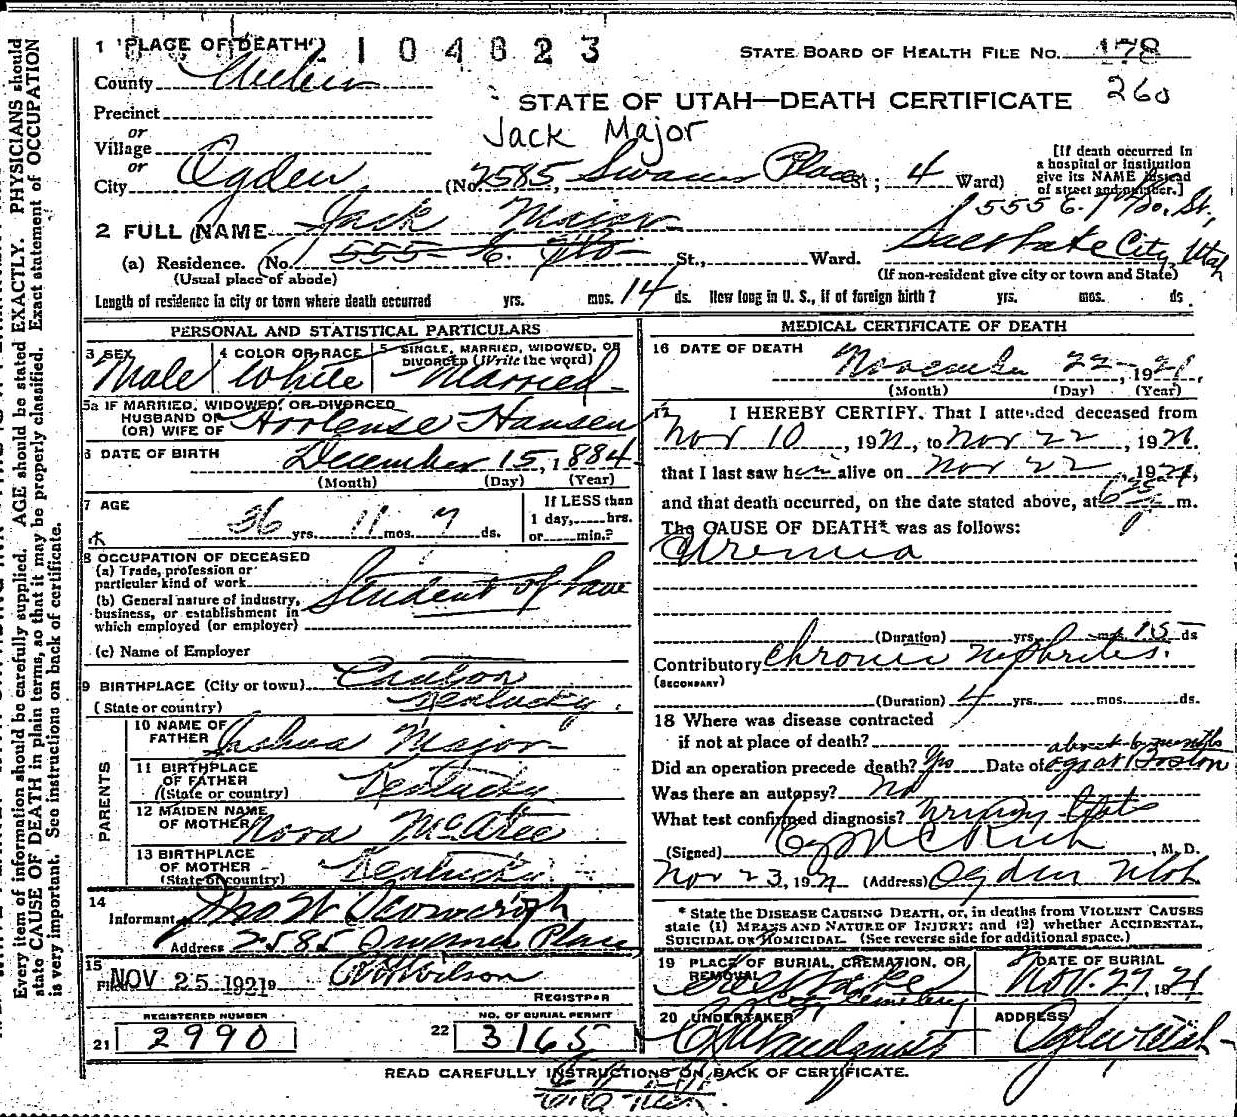 1 PLACE OF DEATH 2104623
STATE BOARD OF HEALTH FILE No. 178
County Weber
260
STATE OF UTAH—DEATH CERTIFICATE
Precinct
or
Jack Major
Village
or
City Ogden (No. 2585, Place St; 4 Ward)
[If death occurred in
a hospital or institution
give its NAME instead
of street and number.]
555 E. 7 So. St,
2 FULL NAME Jack Major
Salt Lake City, Utah
(a) Residence. (No. 555 E. 7 So St., Ward.
(Usual place of abode)
(If non-resident give city or town and State)
Length of residence in city or town where death occurred yrs. mos. 14 ds. How long in U. S., if of foreign birth? yrs. mos. ds.
PERSONAL AND STATISTICAL PARTICULARS
3 SEX
Male
4 COLOR OR RACE
White
5 SINGLE, MARRIED, WIDOWED, OR
DIVORCED (Write the word)
Married
5a IF MARRIED, WIDOWED, OR DIVORCED
HUSBAND OF
(OR) WIFE OF Hortense Hansen
6 DATE OF BIRTH
December 15, 1884
(Month) (Day) (Year)
7 AGE
36 yrs. 11 mos. 7 ds.
If LESS than
1 day, hrs.
or min.?
8 OCCUPATION OF DECEASED
(a) Trade, profession or
particular kind of work
Student of Law
(b) General nature of industry,
business, or establishment in
which employed (or employer)
(c) Name of Employer
9 BIRTHPLACE (City or town)
(State or country) Kentucky.
PARENTS
10 NAME OF
FATHER Joshua Major
11 BIRTHPLACE
OF FATHER
(State or country) Kentucky
12 MAIDEN NAME
OF MOTHER Nora McAtee
13 BIRTHPLACE
OF MOTHER
(State or country) Kentucky
14
Informant Jno W
Address 2585 Place
15
Filed NOV 25 1921 19
Wilson
REGISTRAR
REGISTERED NUMBER
21 2990
NO. OF BURIAL PERMIT
22 3165
MEDICAL CERTIFICATE OF DEATH
16 DATE OF DEATH
November 22, 1921
(Month) (Day) (Year)
17 I HEREBY CERTIFY, That I attended deceased from
Nov 10, 1921, to Nov 22, 1921.
that I last saw him alive on Nov 22, 1921,
and that death occurred, on the date stated above, at m.
The CAUSE OF DEATH* was as follows:
Uremia
(Duration) yrs. mos. 15 ds
Contributory Chronic Nephritis.
(SECONDARY)
(Duration) 4 yrs. mos. ds.
18 Where was disease contracted
if not at place of death?
about 6 months
Did an operation precede death? Yes Date of ago at Boston
Was there an autopsy? No
What test confirmed diagnosis? Urinary tests
(Signed) Rich, M. D.
Nov 23, 1921 (Address) Ogden Utah
* State the DISEASE CAUSING DEATH, or, in deaths from VIOLENT CAUSES
state (1) MEANS AND NATURE OF INJURY; and (2) whether ACCIDENTAL,
SUICIDAL or HOMICIDAL. (See reverse side for additional space.)
19 PLACE OF BURIAL, CREMATION, OR
REMOVAL
Salt Lake
City Cemetery
DATE OF BURIAL
Nov. 27, 1921
20 UNDERTAKER
Lindquist
ADDRESS
Ogden Utah
READ CAREFULLY INSTRUCTIONS ON BACK OF CERTIFICATE.
Every item of information should be carefully supplied. AGE should be stated EXACTLY. PHYSICIANS should
state CAUSE OF DEATH in plain terms, so that it may be properly classified. Exact statement of OCCUPATION
is very important. See instructions on back of certificate.